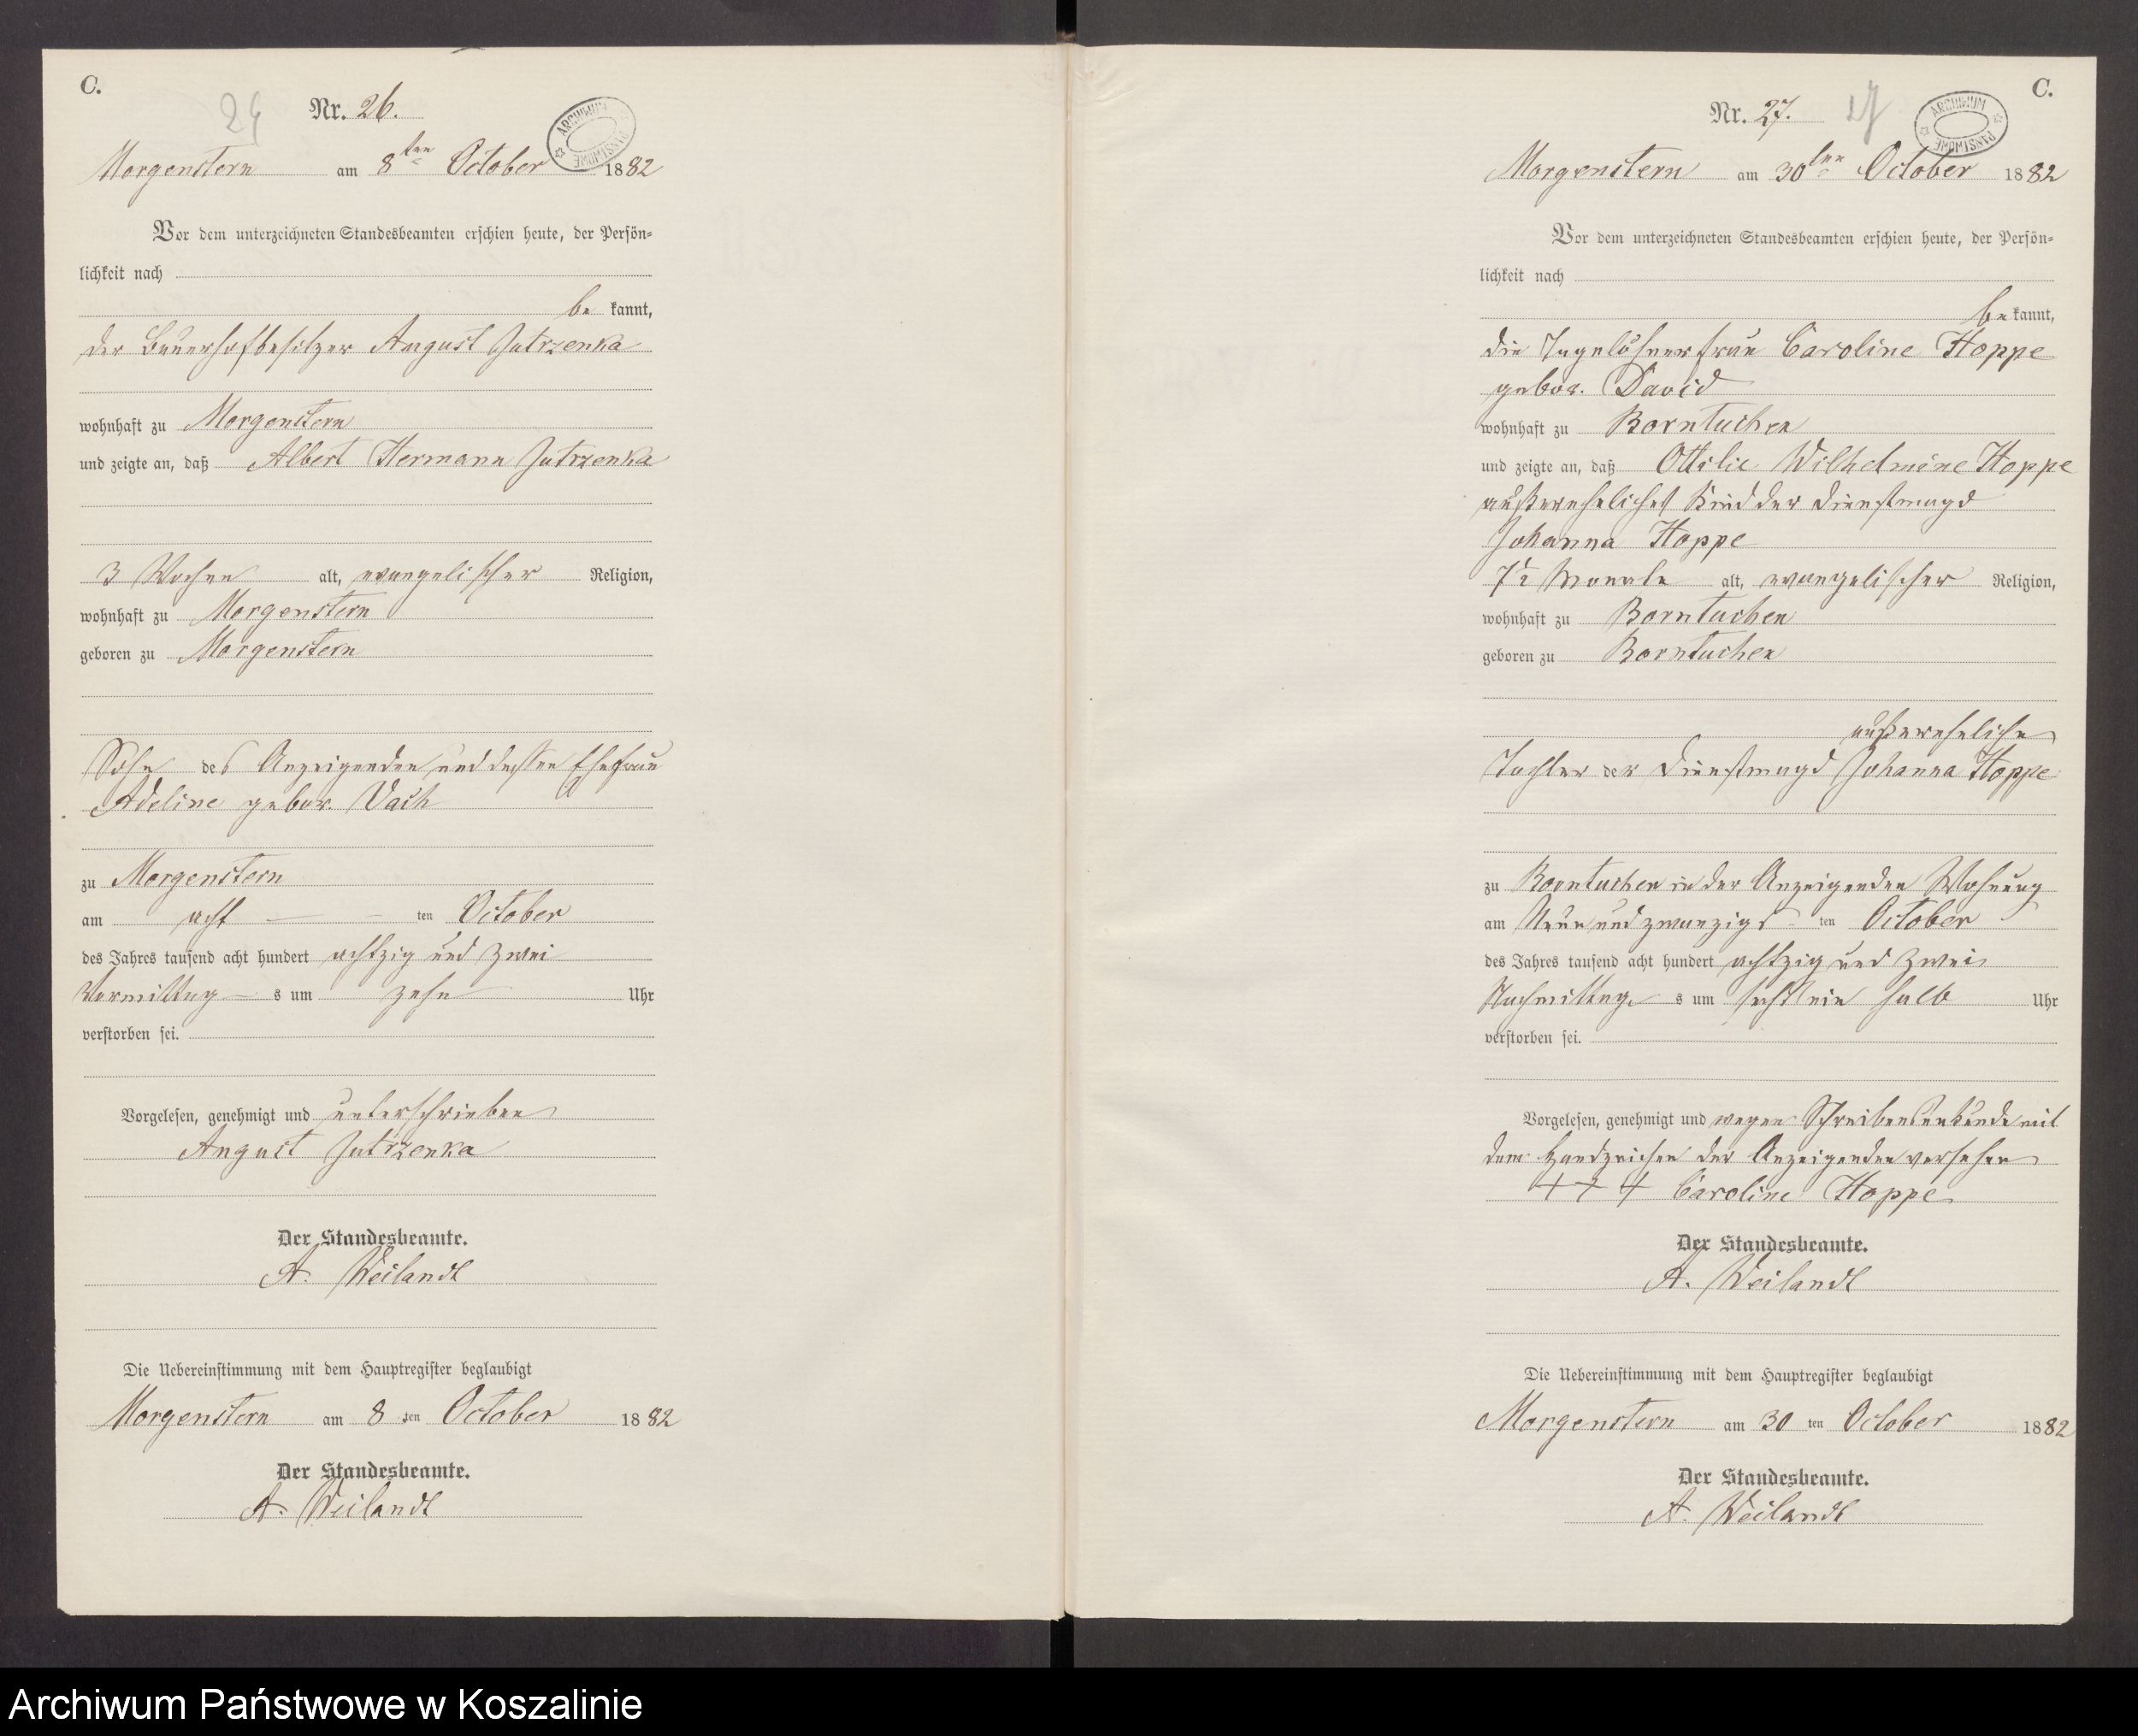 C.
Nr. 26.
ARCHIWUM PAŃSTWOWE
Morgenstern am 8ten October 1882
Vor dem unterzeichneten Standesbeamten erschien heute, der Persön-
lichkeit nach
be kannt,
der Bauerhofbesitzer August Jutrzenka
wohnhaft zu Morgenstern
und zeigte an, daß Albert Hermann Jutrzenka
3 Wochen alt, evangelischer Religion,
wohnhaft zu Morgenstern
geboren zu Morgenstern
Sohn des Anzeigenden und dessen Ehefrau
Adeline gebor. Vach
zu Morgenstern
am acht ten October
des Jahres tausend acht hundert achtzig und zwei
Vormittag s um zehn Uhr
verstorben sei.
Vorgelesen, genehmigt und unterschrieben
August Jutrzenka
Der Standesbeamte.
A. Weilandt
Die Uebereinstimmung mit dem Hauptregister beglaubigt
Morgenstern am 8 ten October 1882
Der Standesbeamte.
A. Weilandt
C.
Nr. 27. 27
ARCHIWUM PAŃSTWOWE
Morgenstern am 30ten October 1882
Vor dem unterzeichneten Standesbeamten erschien heute, der Persön-
lichkeit nach
be kannt,
die Tagelöhnerfrau Caroline Hoppe
gebor. David
wohnhaft zu Borntuchen
und zeigte an, daß Ottilie Wilhelmine Hoppe
außereheliches Kind der Dienstmagd
Johanna Hoppe
7½ Monate alt, evangelischer Religion,
wohnhaft zu Borntuchen
geboren zu Borntuchen
außereheliche
Tochter der Dienstmagd Johanna Hoppe
zu Borntuchen in der Anzeigenden Wohnung
am Neun und zwanzigs ten October
des Jahres tausend acht hundert achtzig und zwei
Nachmittag s um sechs ein halb Uhr
verstorben sei.
Vorgelesen, genehmigt und wegen Schreibensunkunde mit
dem Handzeichen der Anzeigenden versehen
+++ Caroline Hoppe
Der Standesbeamte.
A. Weilandt
Die Uebereinstimmung mit dem Hauptregister beglaubigt
Morgenstern am 30 ten October 1882
Der Standesbeamte.
A. Weilandt
Archiwum Państwowe w Koszalinie